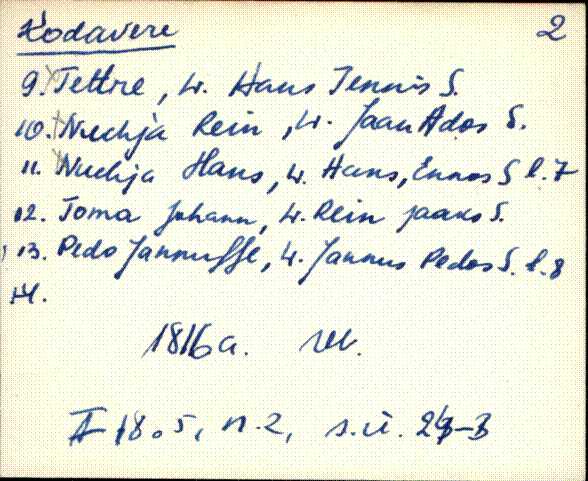 Kodavere 2
9. Tettre, w. Hans Jennis S.
10. Nuchja Rein, w. Jaan Ados S.
11. Nuchja Hans, w. Hans, Ennos S l. 7
12. Toma Johann, w. Rein Jaaks S.
13. Pedo Jannusse, w. Jannus Pedos S. l. 8
14.
1816 a. rev.
II 18.5, n. 2, s. ü.